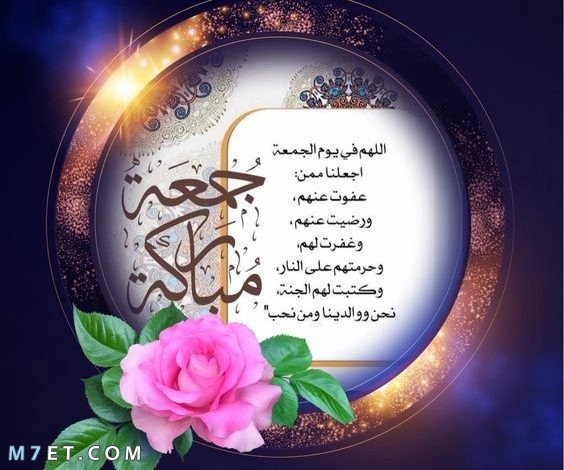 جُمعَة
مُباركَة
اللهم في يوم الجمعة
اجعلنا ممن:
عفوت عنهم،
ورضيت عنهم،
وغفرت لهم،
وحرمتهم على النار،
وكتبت لهم الجنة،
نحن ووالدينا ومن نحب"
M7ET.COM